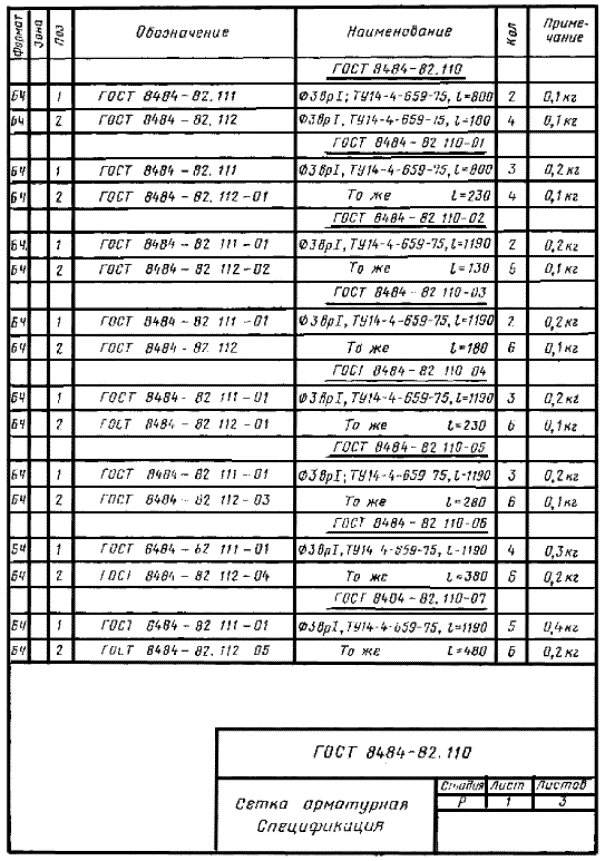 Формат Зона Поз Обозначение Наименование Кол Приме-
чание
ГОСТ 8484-82.110
БЧ 1 ГОСТ 8484-82.111 Ф3ВрI; ТУ14-4-659-75, l=800 2 0,1кг
БЧ 2 ГОСТ 8484-82.112 Ф3ВрI, ТУ14-4-659-75, l=180 4 0,1кг
ГОСТ 8484-82 110-01
БЧ 1 ГОСТ 8484-82.111 Ф3ВрI, ТУ14-4-659-75, l=800 3 0,2кг
БЧ 2 ГОСТ 8484-82.112-01 То же l=230 4 0,1кг
ГОСТ 8484-82 110-02
БЧ 1 ГОСТ 8484-82 111-01 Ф3ВрI, ТУ14-4-659-75, l=1190 2 0,2кг
БЧ 2 ГОСТ 8484-82 112-02 То же l=130 6 0,1кг
ГОСТ 8484-82 110-03
БЧ 1 ГОСТ 8484-82 111-01 Ф3ВрI, ТУ14-4-659-75, l=1190 2 0,2кг
БЧ 2 ГОСТ 8484-82 112 То же l=180 6 0,1кг
ГОСТ 8484-82 110 04
БЧ 1 ГОСТ 8484-82 111-01 Ф3ВрI, ТУ14-4-659-75, l=1190 3 0,2кг
БЧ 2 ГОСТ 8484-82 112-01 То же l=230 6 0,1кг
ГОСТ 8484-82 110-05
БЧ 1 ГОСТ 8484-82 111-01 Ф3ВрI; ТУ14-4-659 75, l=1190 3 0,2кг
БЧ 2 ГОСТ 8484-82 112-03 То же l=280 6 0,1кг
ГОСТ 8484-82 110-06
БЧ 1 ГОСТ 8484-82 111-01 Ф3ВрI, ТУ14 4-659-75, l-1190 4 0,3кг
БЧ 2 ГОСТ 8484-82 112-04 То же l=380 6 0,2кг
ГОСТ 8484-82.110-07
БЧ 1 ГОСТ 8484-82 111-01 Ф3ВрI, ТУ14-4-659-75, l=1190 5 0,4кг
БЧ 2 ГОСТ 8484-82.112 05 То же l=480 6 0,2кг
ГОСТ 8484-82.110
Сетка арматурная
Спецификация
Стадия Лист Листов
Р 1 3